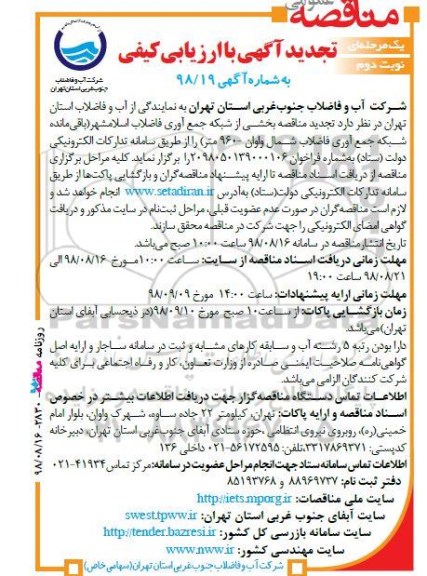 مناقصه عمومی
یک مرحله‌ای
نوبت دوم
تجدید آگهی با ارزیابی کیفی
به شماره آگهی ۹۸/۱۹
شرکت آب و فاضلاب
جنوب غربی استان تهران
شرکت آب و فاضلاب جنوب‌غربی استان تهران به نمایندگی از آب و فاضلاب استان
تهران در نظر دارد تجدید مناقصه بخشی از شبکه جمع آوری فاضلاب اسلامشهر(باقی‌مانده
شبکه جمع آوری فاضلاب شمال واوان ۹۶۰۰ متر) را از طریق سامانه تدارکات الکترونیکی
دولت (ستاد) به‌شماره فراخوان ۲۰۹۸۰۵۰۱۳۹۰۰۰۱۰۶ را برگزار نماید. کلیه مراحل برگزاری
مناقصه از دریافت اسناد مناقصه تا ارایه پیشنهاد مناقصه‌گران و بازگشایی پاکت‌ها از طریق
سامانه تدارکات الکترونیکی دولت(ستاد) به‌آدرس www.setadiran.ir انجام خواهد شد و
لازم است مناقصه‌گران در صورت عدم عضویت قبلی، مراحل ثبت‌نام در سایت مذکور و دریافت
گواهی امضای الکترونیکی را جهت شرکت در مناقصه محقق سازند.
تاریخ انتشار مناقصه در سامانه ۹۸/۰۸/۱۶ ساعت ۱۰:۰۰ صبح می‌باشد.
مهلت زمانی دریافت اسناد مناقصه از سایت: ساعت ۱۰:۰۰ مورخ ۹۸/۰۸/۱۶ الی
۹۸/۰۸/۲۱ ساعت ۱۹:۰۰
مهلت زمانی ارایه پیشنهادات: ساعت ۱۴:۰۰ مورخ ۹۸/۰۹/۰۹
زمان بازگشایی پاکات: از ساعت ۱۰ صبح مورخ ۹۸/۰۹/۱۰(در ذیحسابی آبفای استان
تهران) می‌باشد.
دارا بودن رتبه ۵ رشته آب و سابقه کارهای مشابه و ثبت در سامانه ساجار و ارایه اصل
گواهی‌نامه صلاحیت ایمنی صادره از وزارت تعاون، کار و رفاه اجتماعی برای کلیه
شرکت کنندگان الزامی می‌باشد.
اطلاعات تماس دستگاه مناقصه‌گزار جهت دریافت اطلاعات بیشتر در خصوص
اسناد مناقصه و ارایه پاکات: تهران، کیلومتر ۲۲ جاده ساوه، شهرک واوان، بلوار امام
خمینی(ره)، روبروی نیروی انتظامی، حوزه ستادی آبفای جنوب‌غربی استان تهران، دبیرخانه
کدپستی: ۳۳۱۷۸۶۹۳۷۱ تلفن: ۵۶۱۷۲۵۹۵-۰۲۱ داخلی ۱۳۶
اطلاعات تماس سامانه ستاد جهت انجام مراحل عضویت در سامانه: مرکز تماس ۴۱۹۳۴-۰۲۱
دفتر ثبت نام: ۸۸۹۶۹۷۳۷ و ۸۵۱۹۳۷۶۸
سایت ملی مناقصات: http://iets.mporg.ir
سایت آبفای جنوب غربی استان تهران: swest.tpww.ir
سایت سامانه بازرسی کل کشور: http://tender.bazresi.ir
سایت مهندسی کشور: www.nww.ir
شرکت آب و فاضلاب جنوب غربی استان تهران(سهامی خاص)
روزنامه مناقصه ۲۸۳۰ - ۹۸/۰۸/۱۶
ParsNamadData